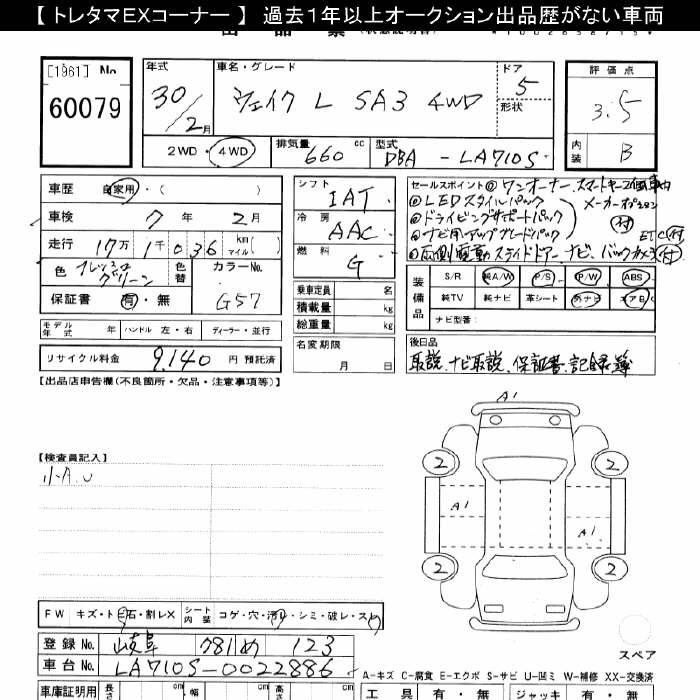 【 トレタマEXコーナー 】 過去1年以上オークション出品歴がない車両
[1961] No
60079
年式
30/2月
車名・グレード
ウェイク L SA3 4WD
ドア 5
形状
評価点
3.5
内装 B
2WD・4WD
排気量 660 cc
型式 DBA - LA710S
車歴 自家用・( )
車検 7年 2月
走行 17万 1千 036 km マイル ( )
色 フレッシュグリーン
色替
カラーNo. G57
保証書 有・無
モデル年式 年
ハンドル 左・右
ディーラー・並行
リサイクル料金 9,140 円 預託済
シフト IAT
冷房 AAC
燃料 G
乗車定員 名
積載量 kg
総重量 kg
名変期限
月 日
セールスポイント ① ワンオーナー、スマートキー2個車内
② LEDスタイルパック
③ ドライビングサポートパック
④ ナビ用アップグレードパック
メーカーオプション 付
⑤ 両側電動スライドドアー、ナビ、バックカメラ 付
ETC 付
装備品
S/R 純A/W P/S P/W ABS
純TV 純ナビ 革シート 外ナビ エアB
ナビ型番:
後日品
取説、ナビ取説、保証書、記録簿
【出品店申告欄(不良箇所・欠品・注意事項等)】
【検査員記入】
小A.U
A1
2
2
A1
A1
2
2
スペア
FW キズ・トビ石・割レX
シート内装 コゲ・穴・汚レ・シミ・破レ・スレ
登録No. 岐阜 781 め 123
車台No. LA710S-0022886
A-キズ C-腐食 E-エクボ S-サビ U-凹ミ W-補修 XX-交換済
車庫証明用 長さ cm 幅 cm 高さ cm
工具 有・無 ジャッキ 有・無